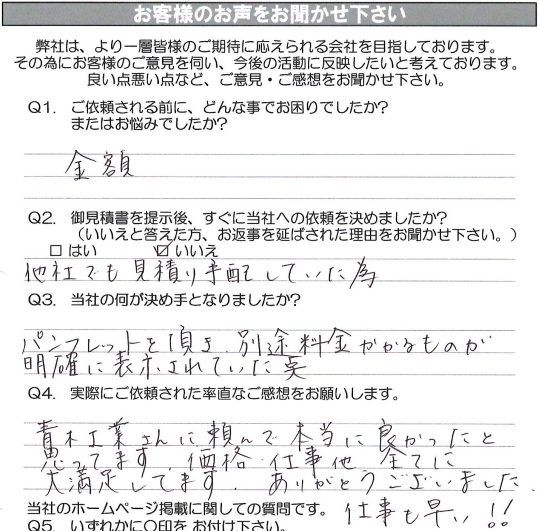 お客様のお声をお聞かせ下さい
弊社は、より一層皆様のご期待に応えられる会社を目指しております。
その為にお客様のご意見を伺い、今後の活動に反映したいと考えております。
良い点悪い点など、ご意見・ご感想をお聞かせ下さい。
Q1. ご依頼される前に、どんな事でお困りでしたか?
またはお悩みでしたか?
金額
Q2. 御見積書を提示後、すぐに当社への依頼を決めましたか?
(いいえと答えた方、お返事を延ばされた理由をお聞かせ下さい。)
□ はい ☑ いいえ
他社でも見積り手配していた為
Q3. 当社の何が決め手となりましたか?
パンフレットを頂き、別途料金がかかるものが
明確に表示されていた点
Q4. 実際にご依頼された率直なご感想をお願いします。
青木工業さんに頼んで本当に良かったと
思ってます。価格・仕事他、全てに
大満足してます。ありがとうございました。
仕事も早い!!
当社のホームページ掲載に関しての質問です。
Q5. いずれかに○印を お付け下さい。